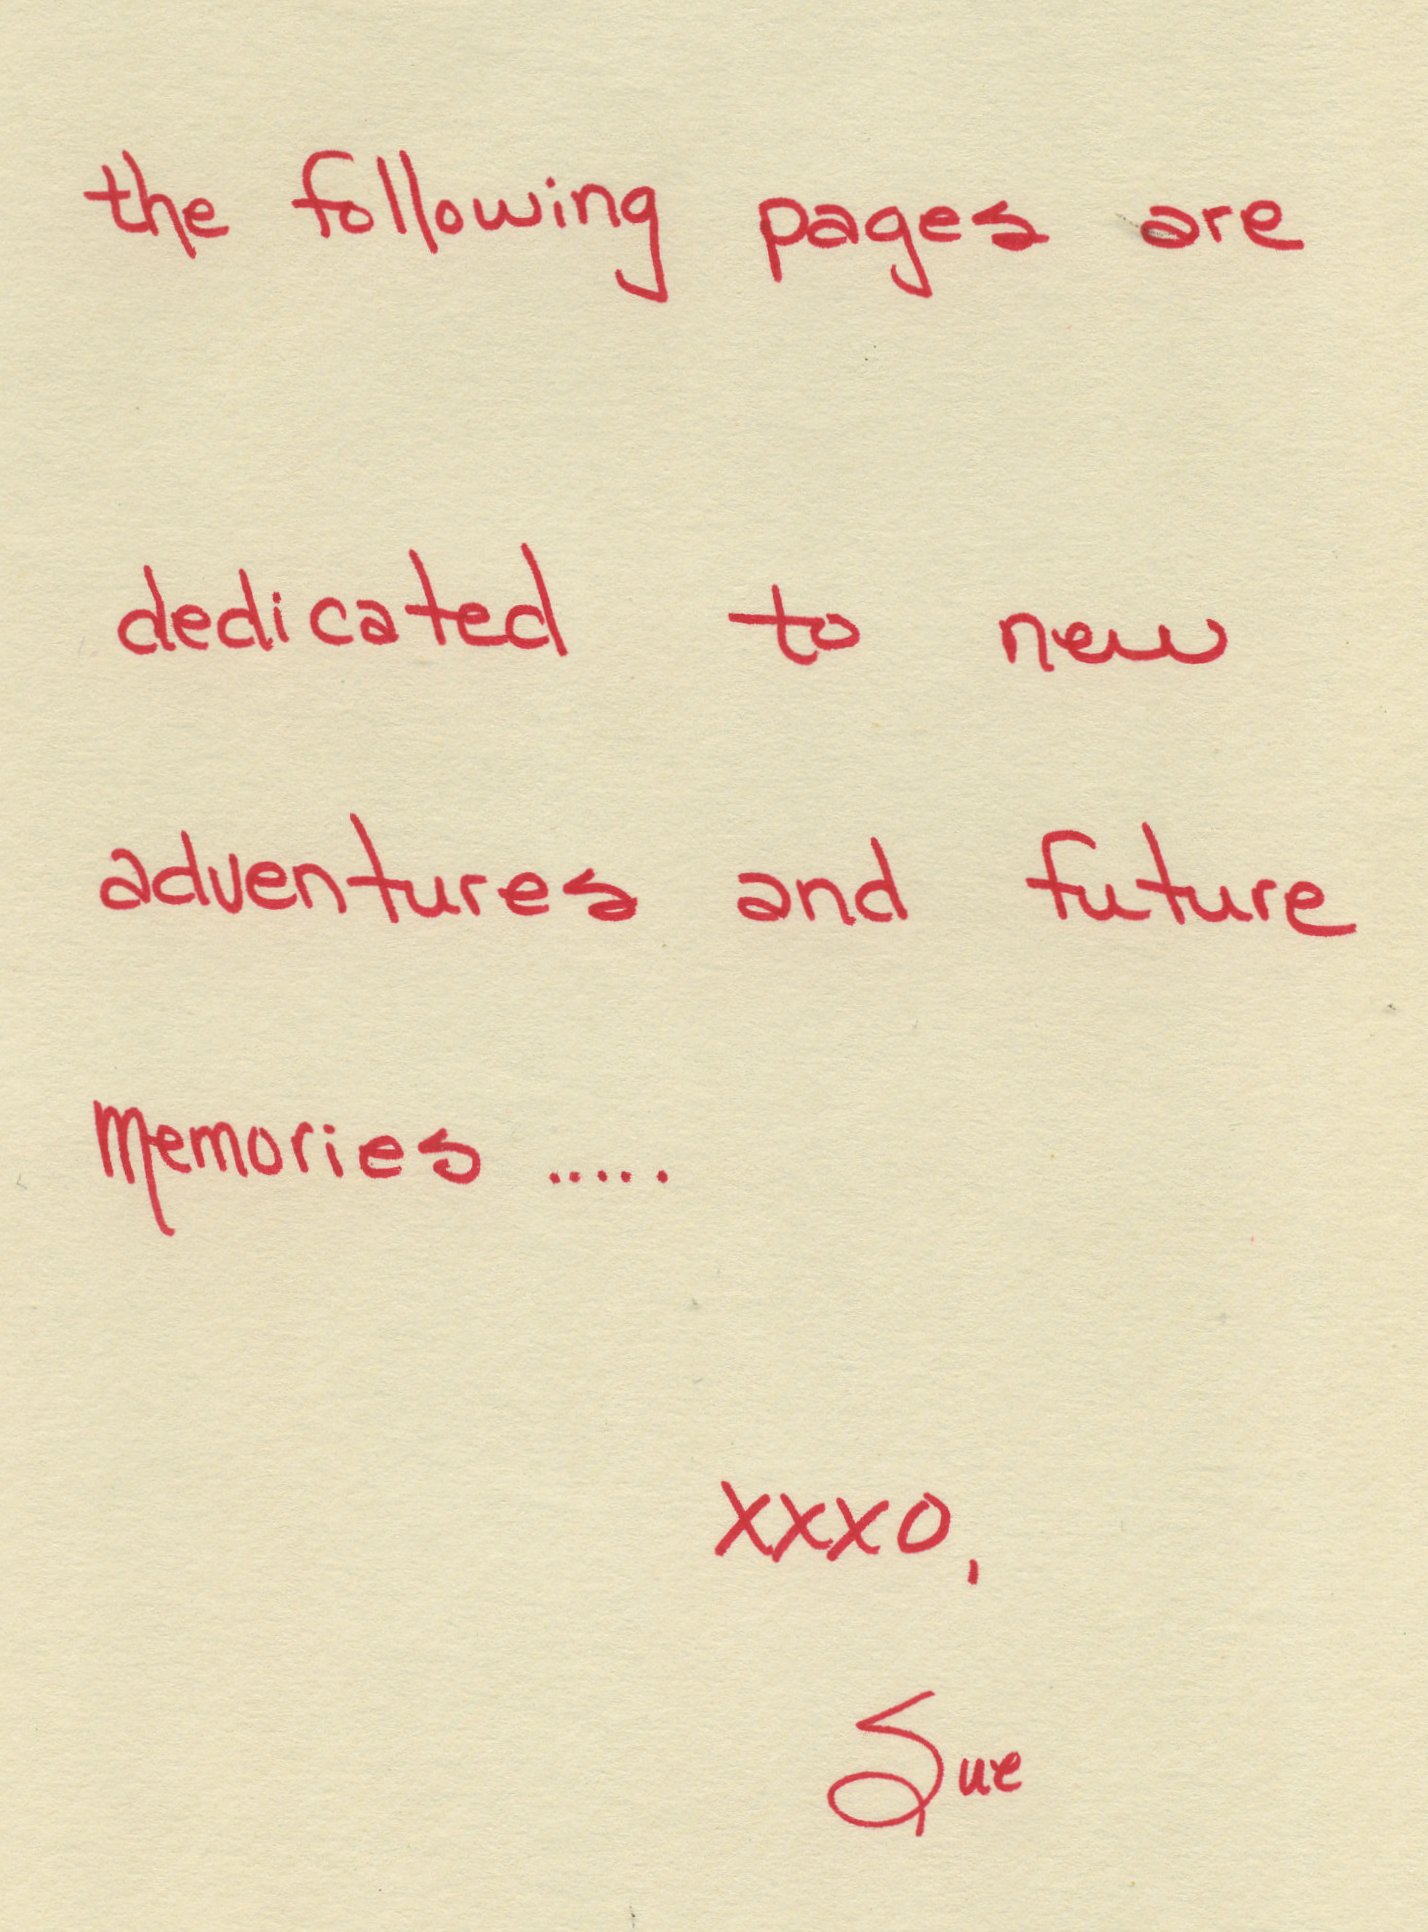 the following pages are
dedicated to new
adventures and future
Memories .....
XXXO,
Sue